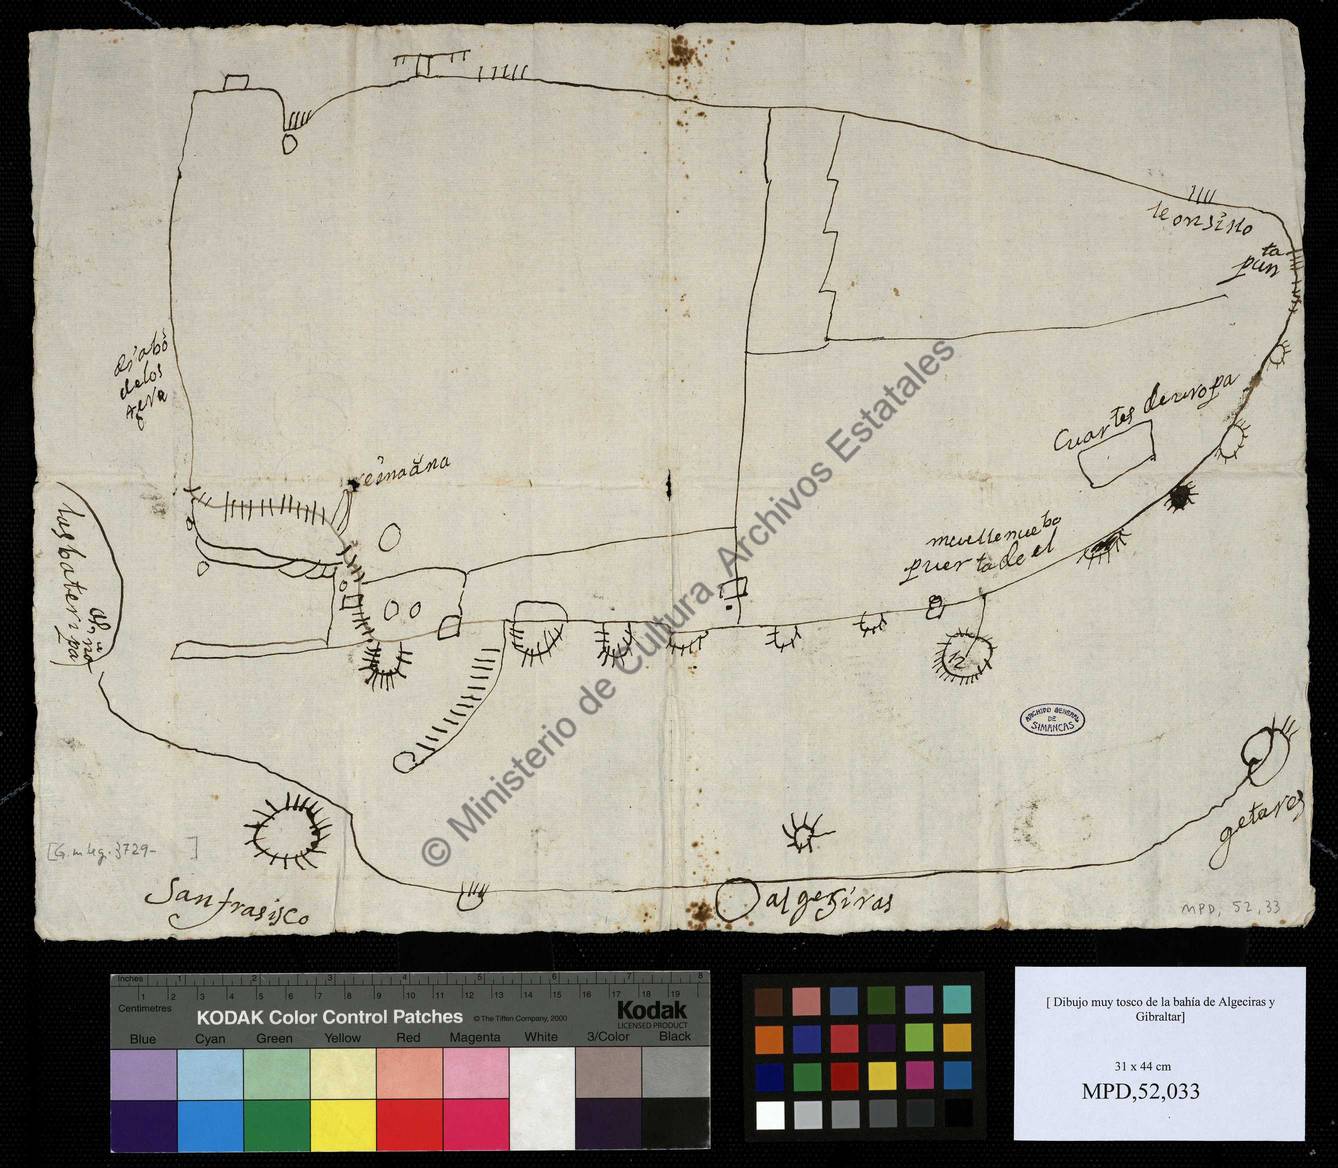 leonsillo
ta
pun
delos
reinaána
Cuartes deuropa
muellenuebo
puertadeel
12
las bateri
getares
San frasisco
algesiras
[G. m leg. 3729- ]
MPD, 52,33
ARCHIVO GENERAL
DE
SIMANCAS
© Ministerio de Cultura, Archivos Estatales
Inches 1 2 3 4 5 6 7 8
Centimetres 1 2 3 4 5 6 7 8 9 10 11 12 13 14 15 16 17 18 19
KODAK Color Control Patches © The Tiffen Company, 2000
Kodak
LICENSED PRODUCT
Blue Cyan Green Yellow Red Magenta White 3/Color Black
[ Dibujo muy tosco de la bahía de Algeciras y
Gibraltar]
31 x 44 cm
MPD,52,033